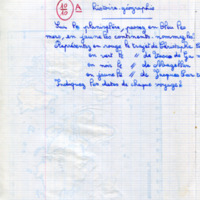 10/10 A histoire géographie
Sur le planisphère, passez en bleu les
mers, en jaune les continents. nommez
Représentez en rouge le trajet de Christophe
en vert le // de Vasco de Ga
en noir le // de Magellan
en jaune le // de Jacques Car
Indiquez les dates de chaque voyage